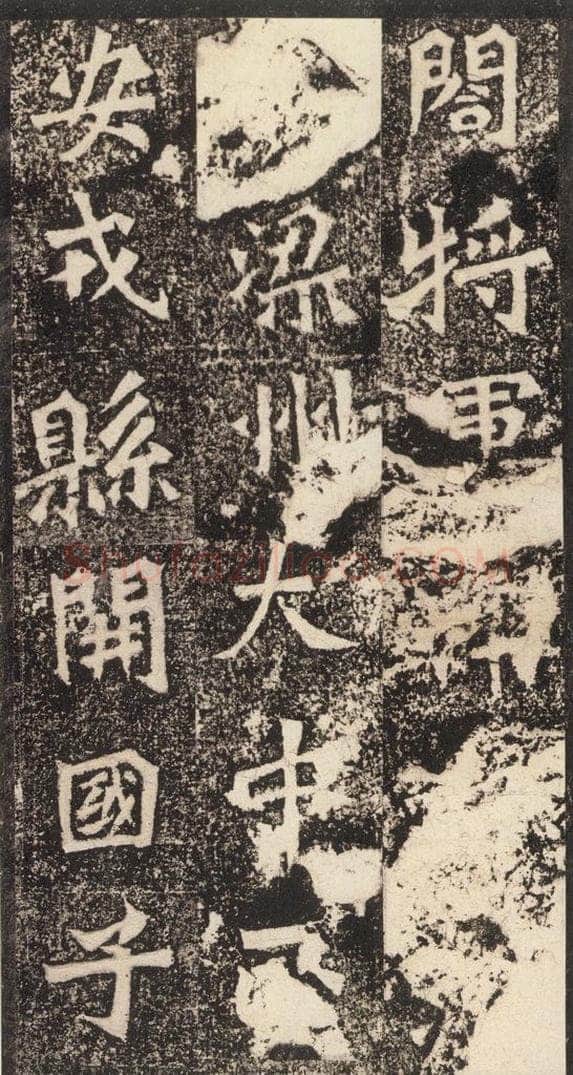 閤將軍
梁州大中
安戎縣開國子
shufaziliao.COM